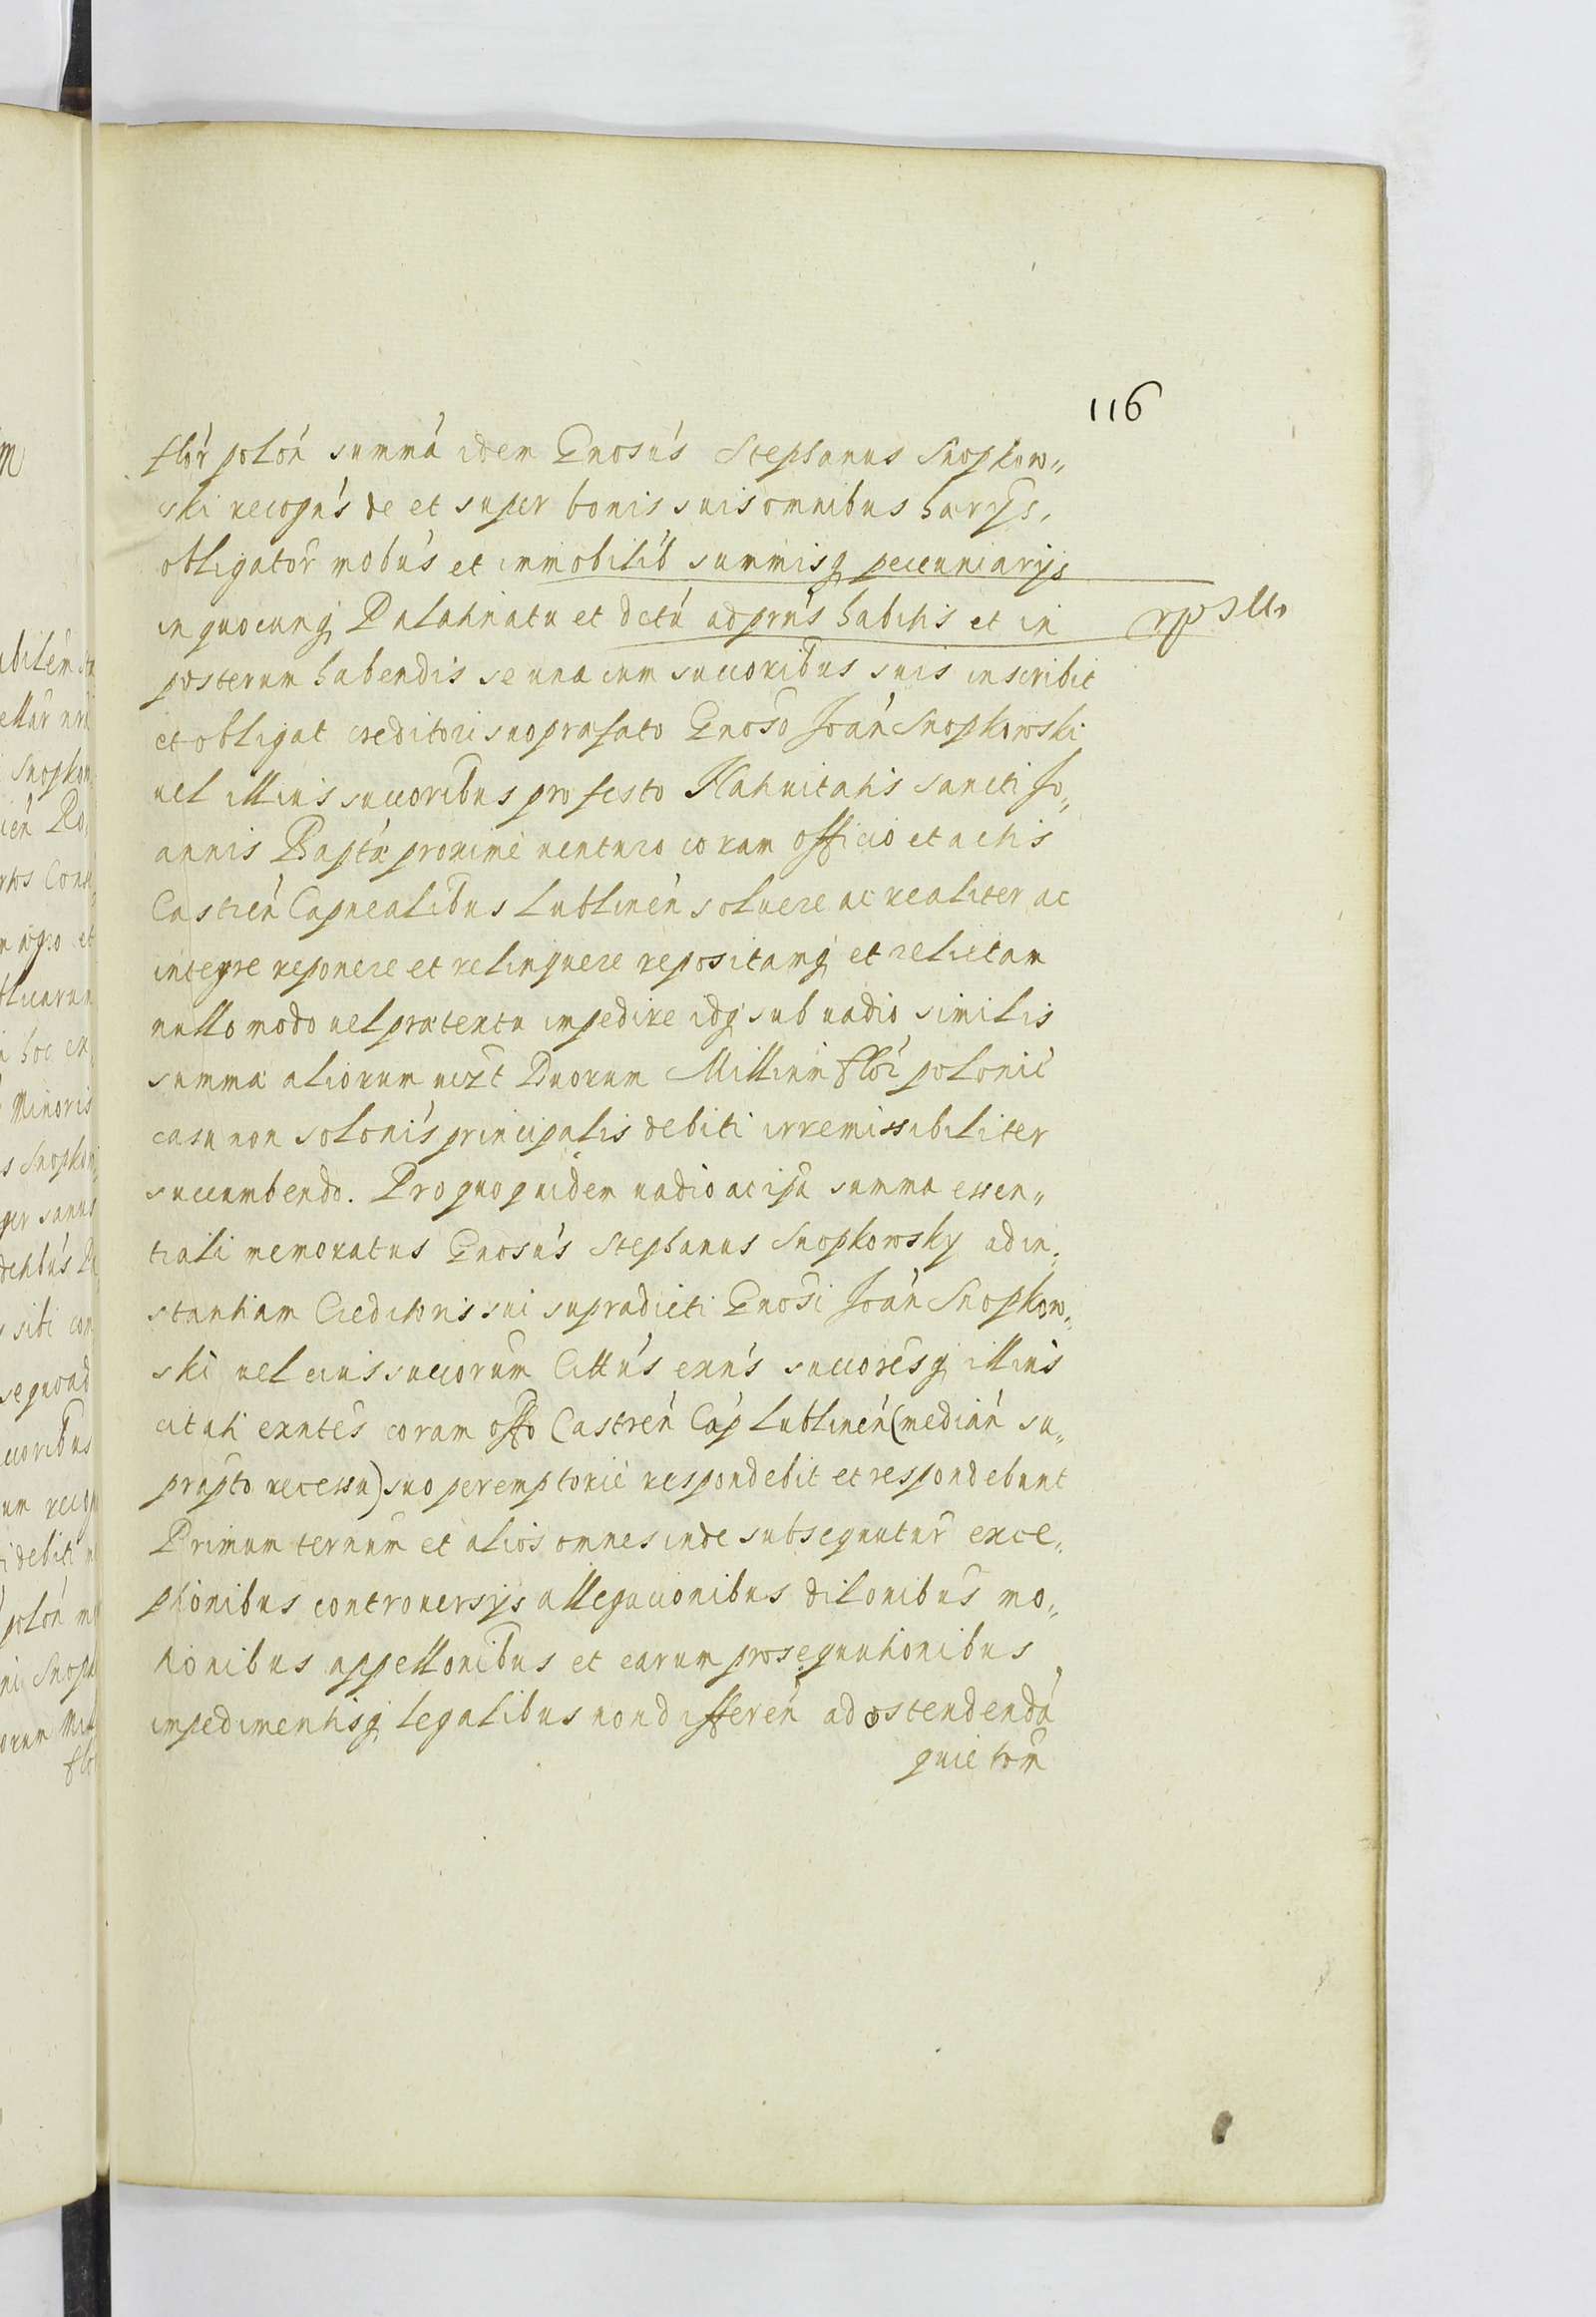 116
flor̃ polon̄ summa̅ idem Gnosu̅s Stephanus Snopkow„
ski recogn̅s de et super bonis suis omnibus hae̅rys,
obligator̅ mobu̅s et immobilib̅ summisq̨ pecuniarys
in quocunq̨ Palatinatu et dctu̅ ad prn̅s habitis et in
posterum habendis se una cum sucōribus suis inscribit
et obligat creditori suo præfato Gnoso Joan̅ Snopkowski
uel illius sucōribus pro festo Natiuitatis Sancti Jo„
annis Baptæ proxime uenturo coram officio et actis
Castren̅ Capnealibus Lublinen̅ soluere ac realiter ac
integre reponere et relinquere repositamq̨ et relictam
nullo modo uel prætextu impedire idq̨ sub uadio similis
summæ aliorum uizt Duorum Millium flor̅ polonic̅
casu non soloni̅s principalis debiti irremissibiliter
succumbendo. Pro quo quidem uadio ac ipsa summa essen„
tiali memoratus Gnosu̅s Stephanus Snopkowsky ad in„
stantiam Creditoris sui supradicti Gnosi Joan̅ Snopkow„
ski uel eius sucōrum Cittu̅s exn̅s sucōresq̨ illius
citati exnte̅s coram offo Castren̅ Cap̅ Lublinen̅ (median̅ su„
prapto recessu) suo peremptorie respondebit et respondebunt
Primum ternum̅ et alios omnes inde subsequutur̅ exce„
ptionibus controuersys allegacionibus dilonibus mo„
tionibus appellonibus et earum prosequutionibus
impedimentisq̨ legalibus non differen̅ ad ostendenda̅
quietom̅